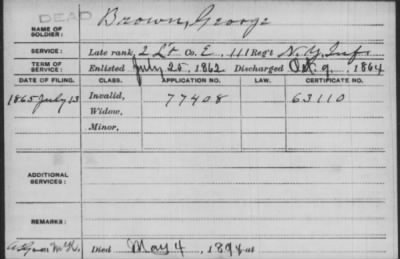 DEAD
NAME OF SOLDIER: Brown, George
SERVICE: Late rank, 2 Lt Co. E, 111 Reg't N.Y. Inf.
TERM OF SERVICE: Enlisted July 25, 1862 Discharged Oct. 9, 1864
DATE OF FILING. CLASS. APPLICATION NO. LAW. CERTIFICATE NO.
1865 July 13 Invalid, 77408 63110
Widow,
Minor,
ADDITIONAL SERVICES:
REMARKS:
Died May 4, 1894 at